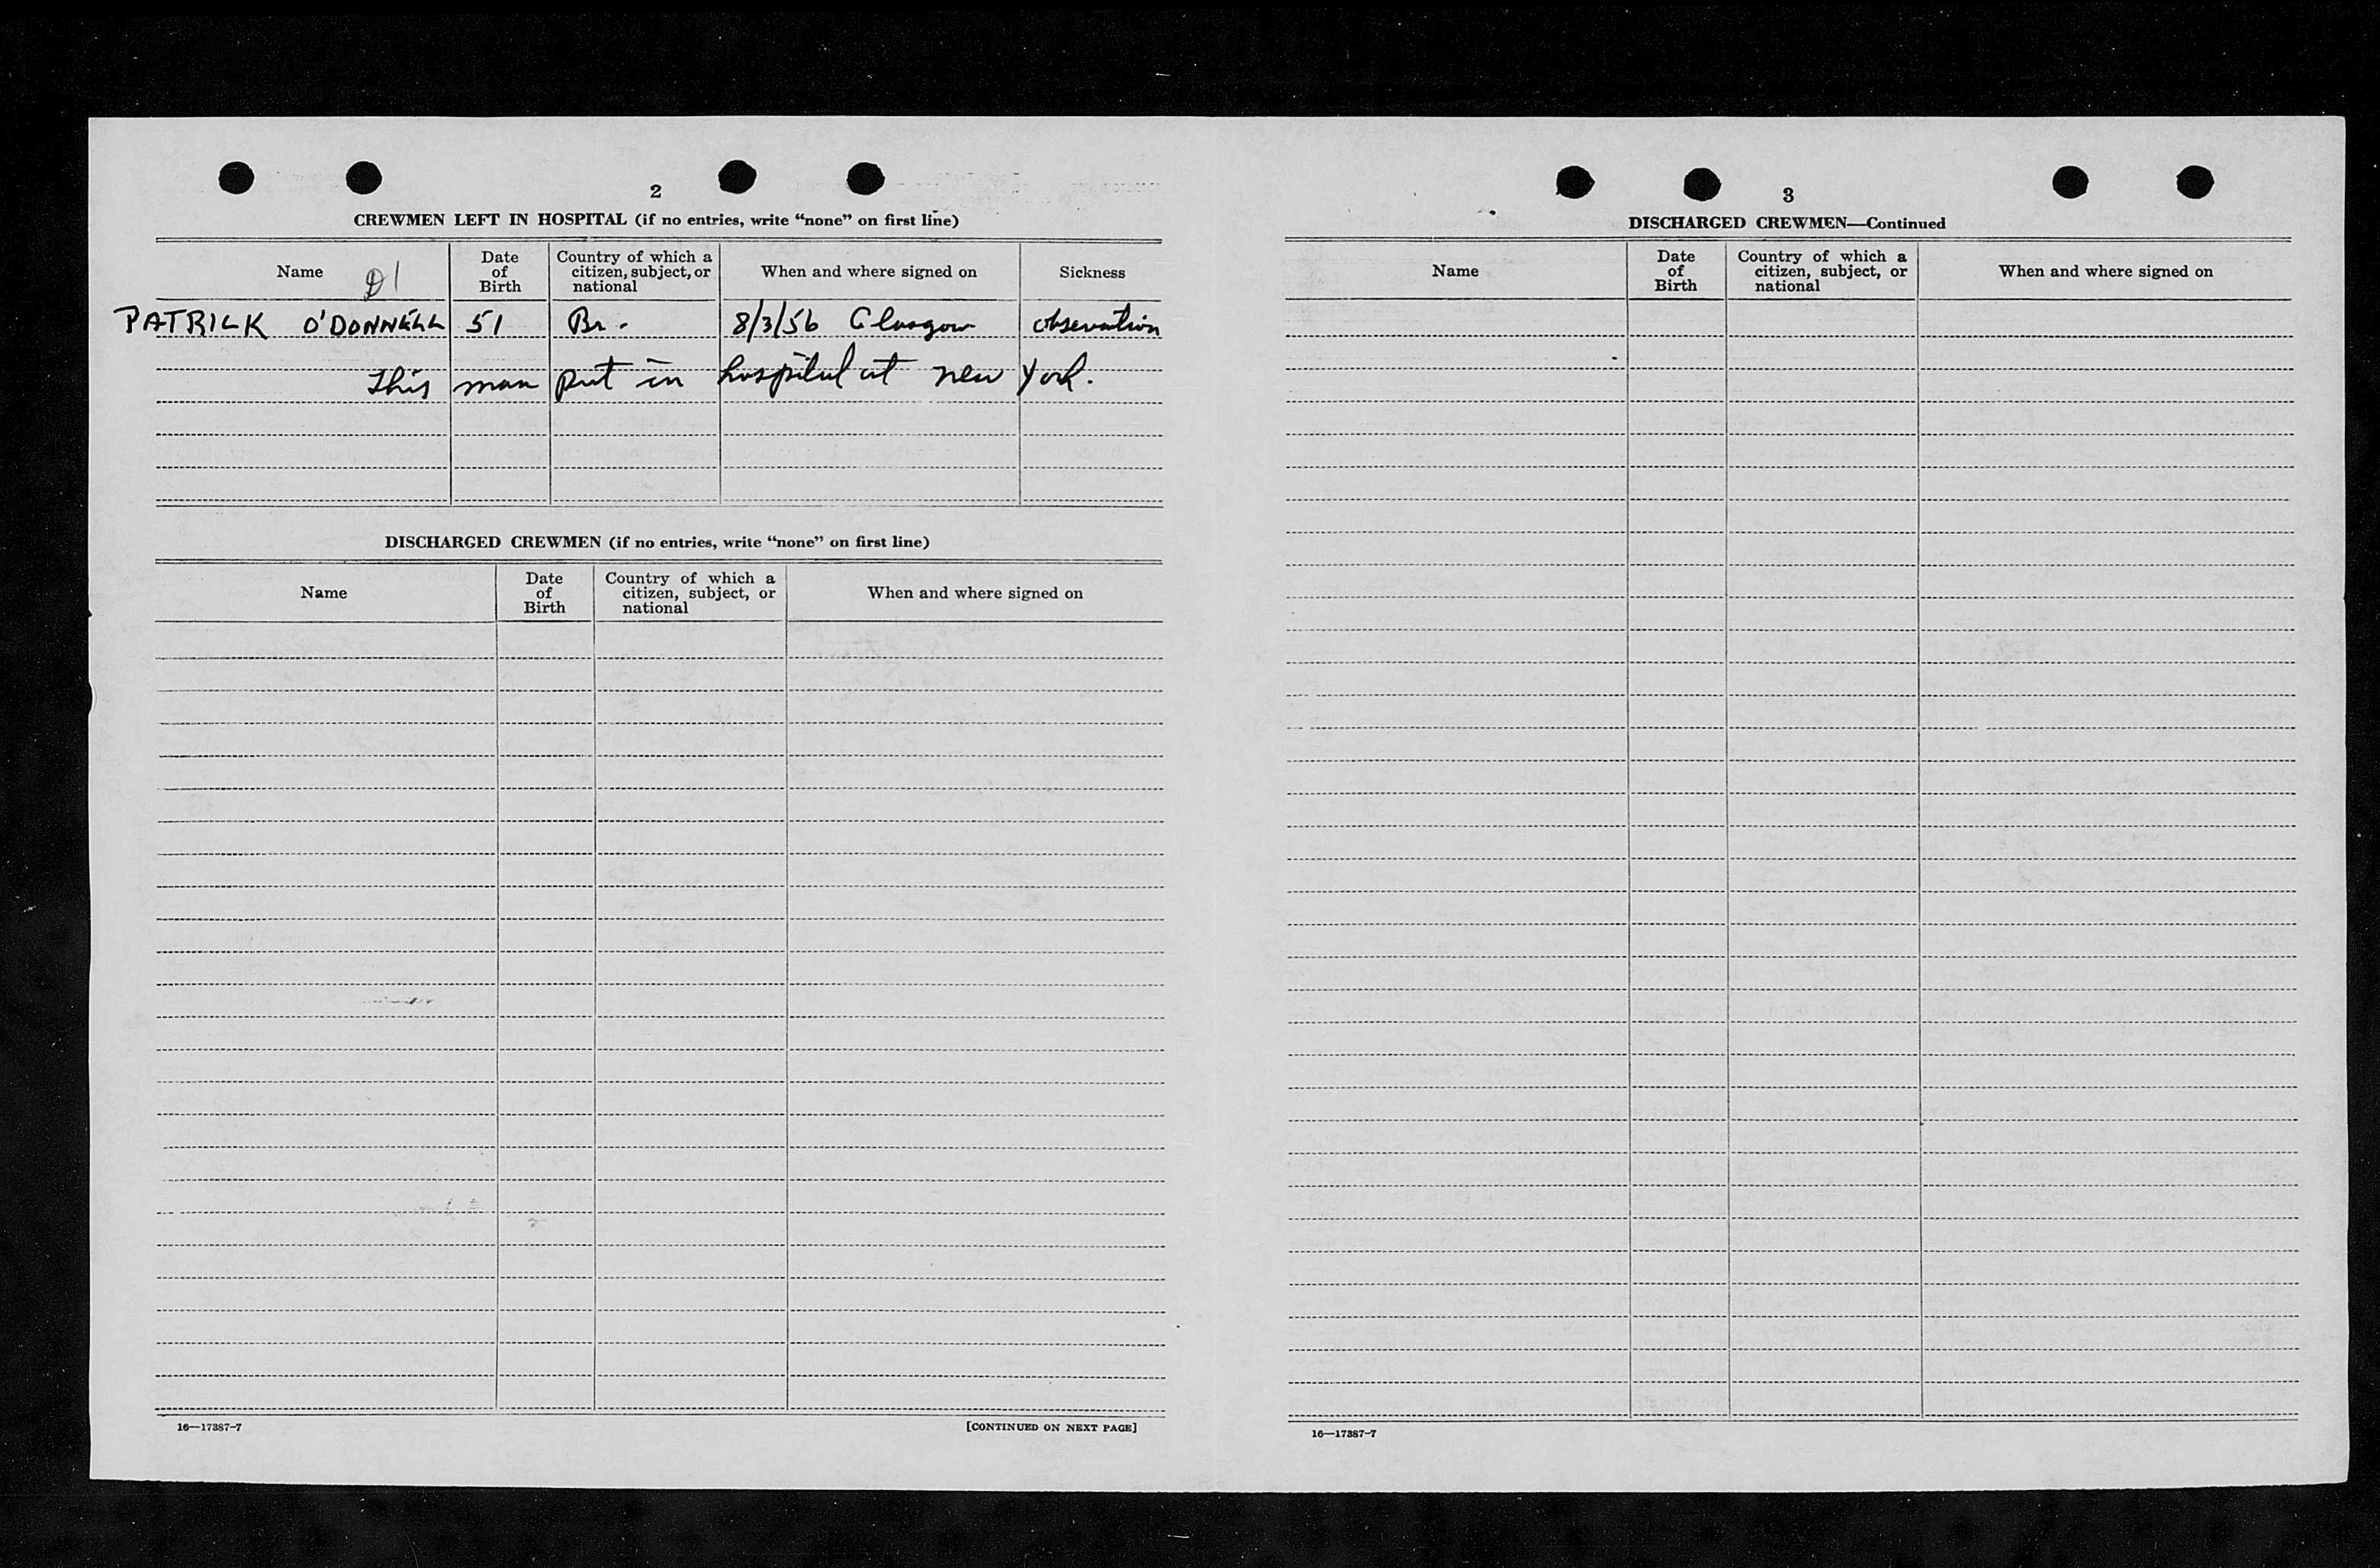 2
CREWMEN LEFT IN HOSPITAL (if no entries, write “none” on first line)
Name
Date of Birth
Country of which a citizen, subject, or national
When and where signed on
Sickness
PATRICK O'DONNELL 51 Br. 8/3/56 Glasgow observation
This man put in hospital at new York.
DISCHARGED CREWMEN (if no entries, write “none” on first line)
Name
Date of Birth
Country of which a citizen, subject, or national
When and where signed on
16—17387-7
[CONTINUED ON NEXT PAGE]
3
DISCHARGED CREWMEN—Continued
Name
Date of Birth
Country of which a citizen, subject, or national
When and where signed on
16—17387-7